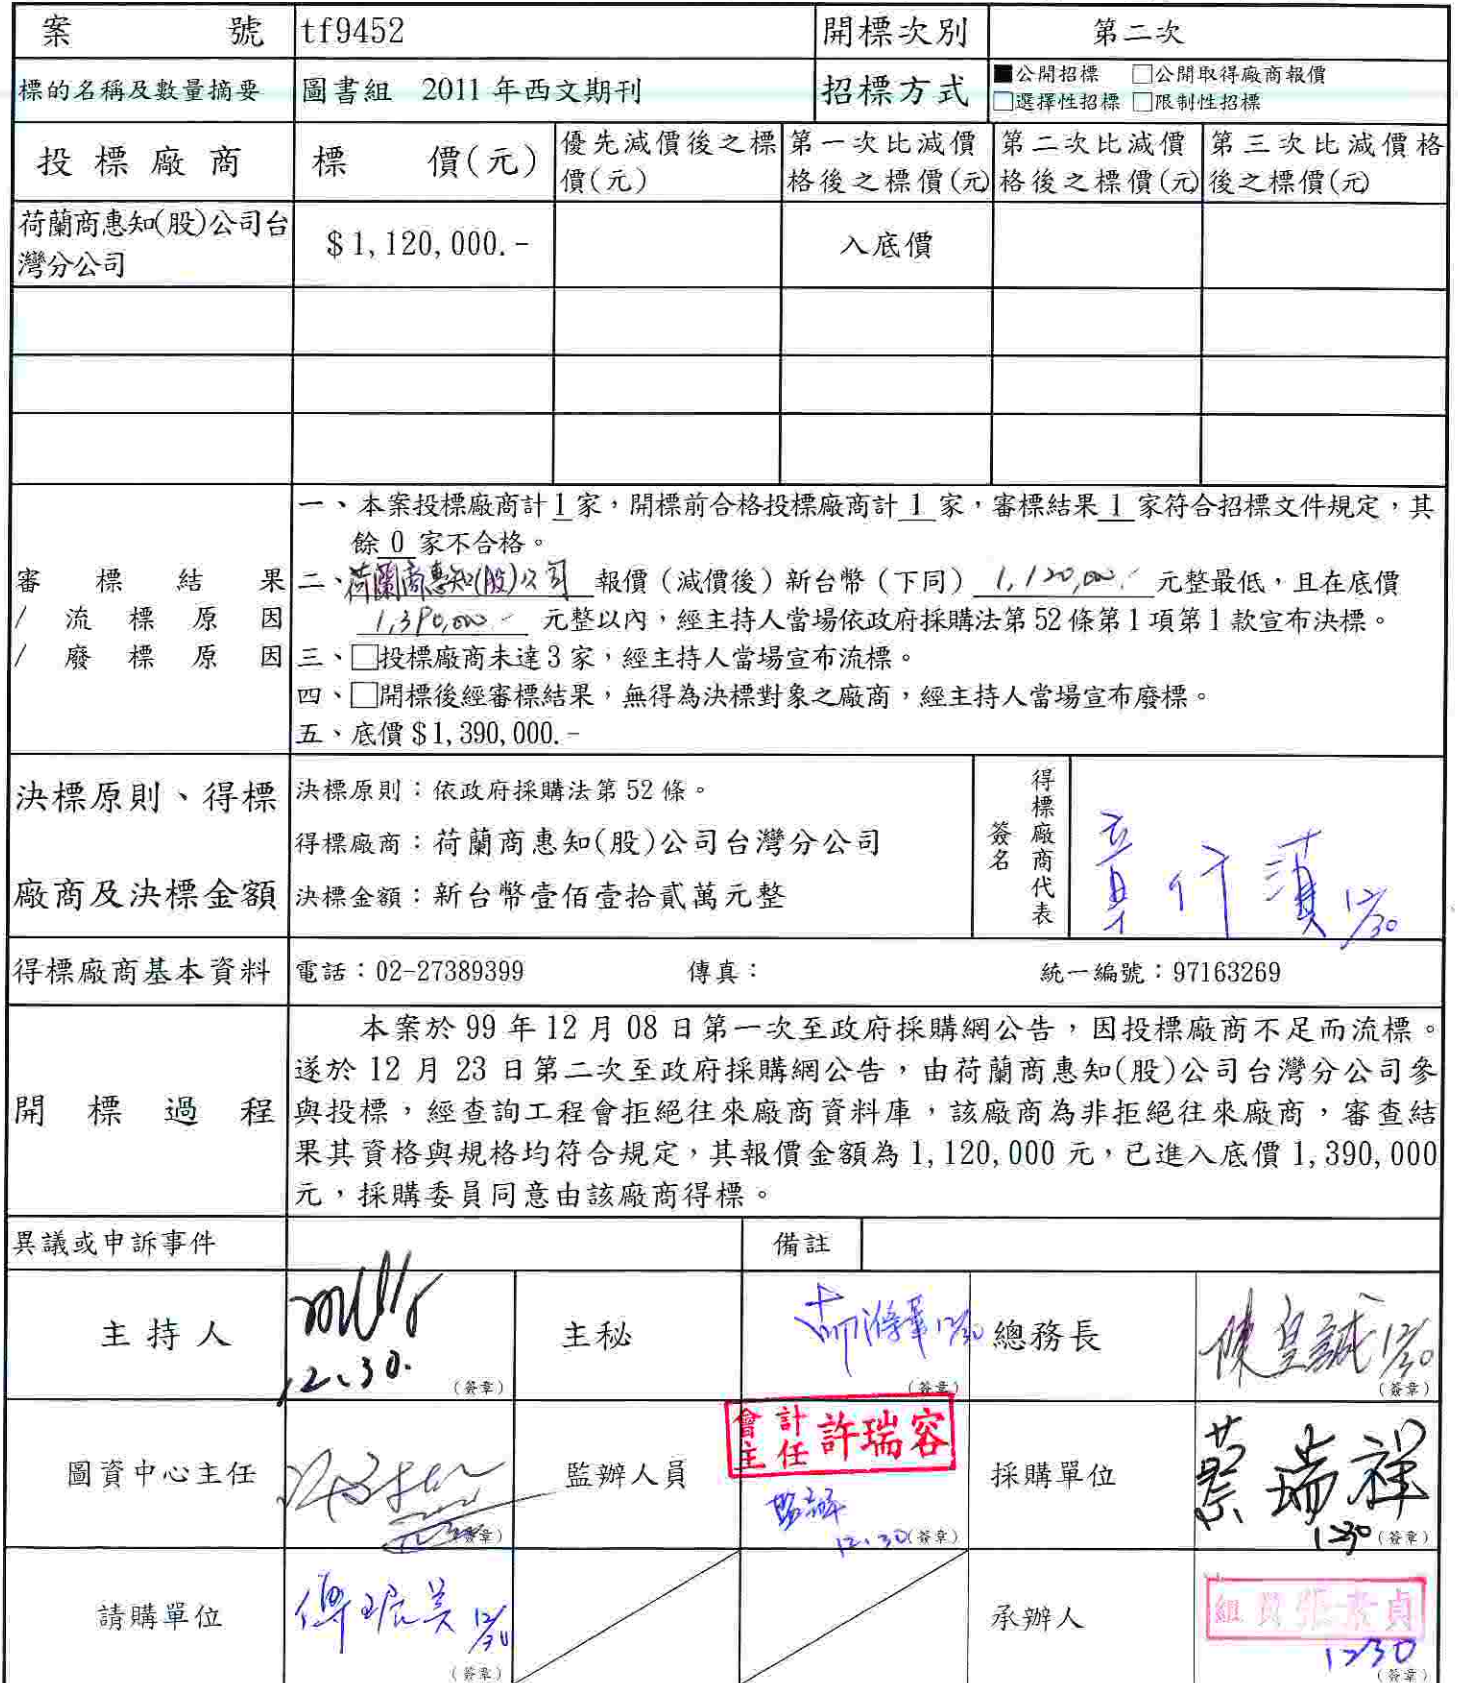 案 號 tf9452 開標次別 第二次
標的名稱及數量摘要 圖書組 2011年西文期刊 招標方式 ■公開招標 □公開取得廠商報價
□選擇性招標 □限制性招標
投標廠商 標 價(元) 優先減價後之標價(元) 第一次比減價格後之標價(元) 第二次比減價格後之標價(元) 第三次比減價格後之標價(元)
荷蘭商惠知(股)公司台灣分公司 $1,120,000.- 入底價
審標結果
/流標原因
/廢標原因
一、本案投標廠商計1家,開標前合格投標廠商計1家,審標結果1家符合招標文件規定,其
餘0家不合格。
二、荷蘭商惠知(股)公司 報價(減價後)新台幣(下同) 1,120,000.- 元整最低,且在底價
1,390,000.- 元整以內,經主持人當場依政府採購法第52條第1項第1款宣布決標。
三、□投標廠商未達3家,經主持人當場宣布流標。
四、□開標後經審標結果,無得為決標對象之廠商,經主持人當場宣布廢標。
五、底價$1,390,000.-
決標原則、得標
廠商及決標金額
決標原則:依政府採購法第52條。
得標廠商:荷蘭商惠知(股)公司台灣分公司
決標金額:新台幣壹佰壹拾貳萬元整
得標廠商代表
簽名
12/30
得標廠商基本資料 電話:02-27389399 傳真: 統一編號:97163269
開標過程
本案於99年12月08日第一次至政府採購網公告,因投標廠商不足而流標。
遂於12月23日第二次至政府採購網公告,由荷蘭商惠知(股)公司台灣分公司參
與投標,經查詢工程會拒絕往來廠商資料庫,該廠商為非拒絕往來廠商,審查結
果其資格與規格均符合規定,其報價金額為1,120,000元,已進入底價1,390,000
元,採購委員同意由該廠商得標。
異議或申訴事件 備註
主持人 12.30. (簽章) 主秘 12/30 (簽章) 總務長 陳皇誠 12/30 (簽章)
圖資中心主任 (簽章) 監辦人員 會計主任 許瑞容 監辦 12.30 (簽章) 採購單位 蔡瑞祥 1230 (簽章)
請購單位 傅珮美 12/30 (簽章) 承辦人 組員張素貞 1230 (簽章)